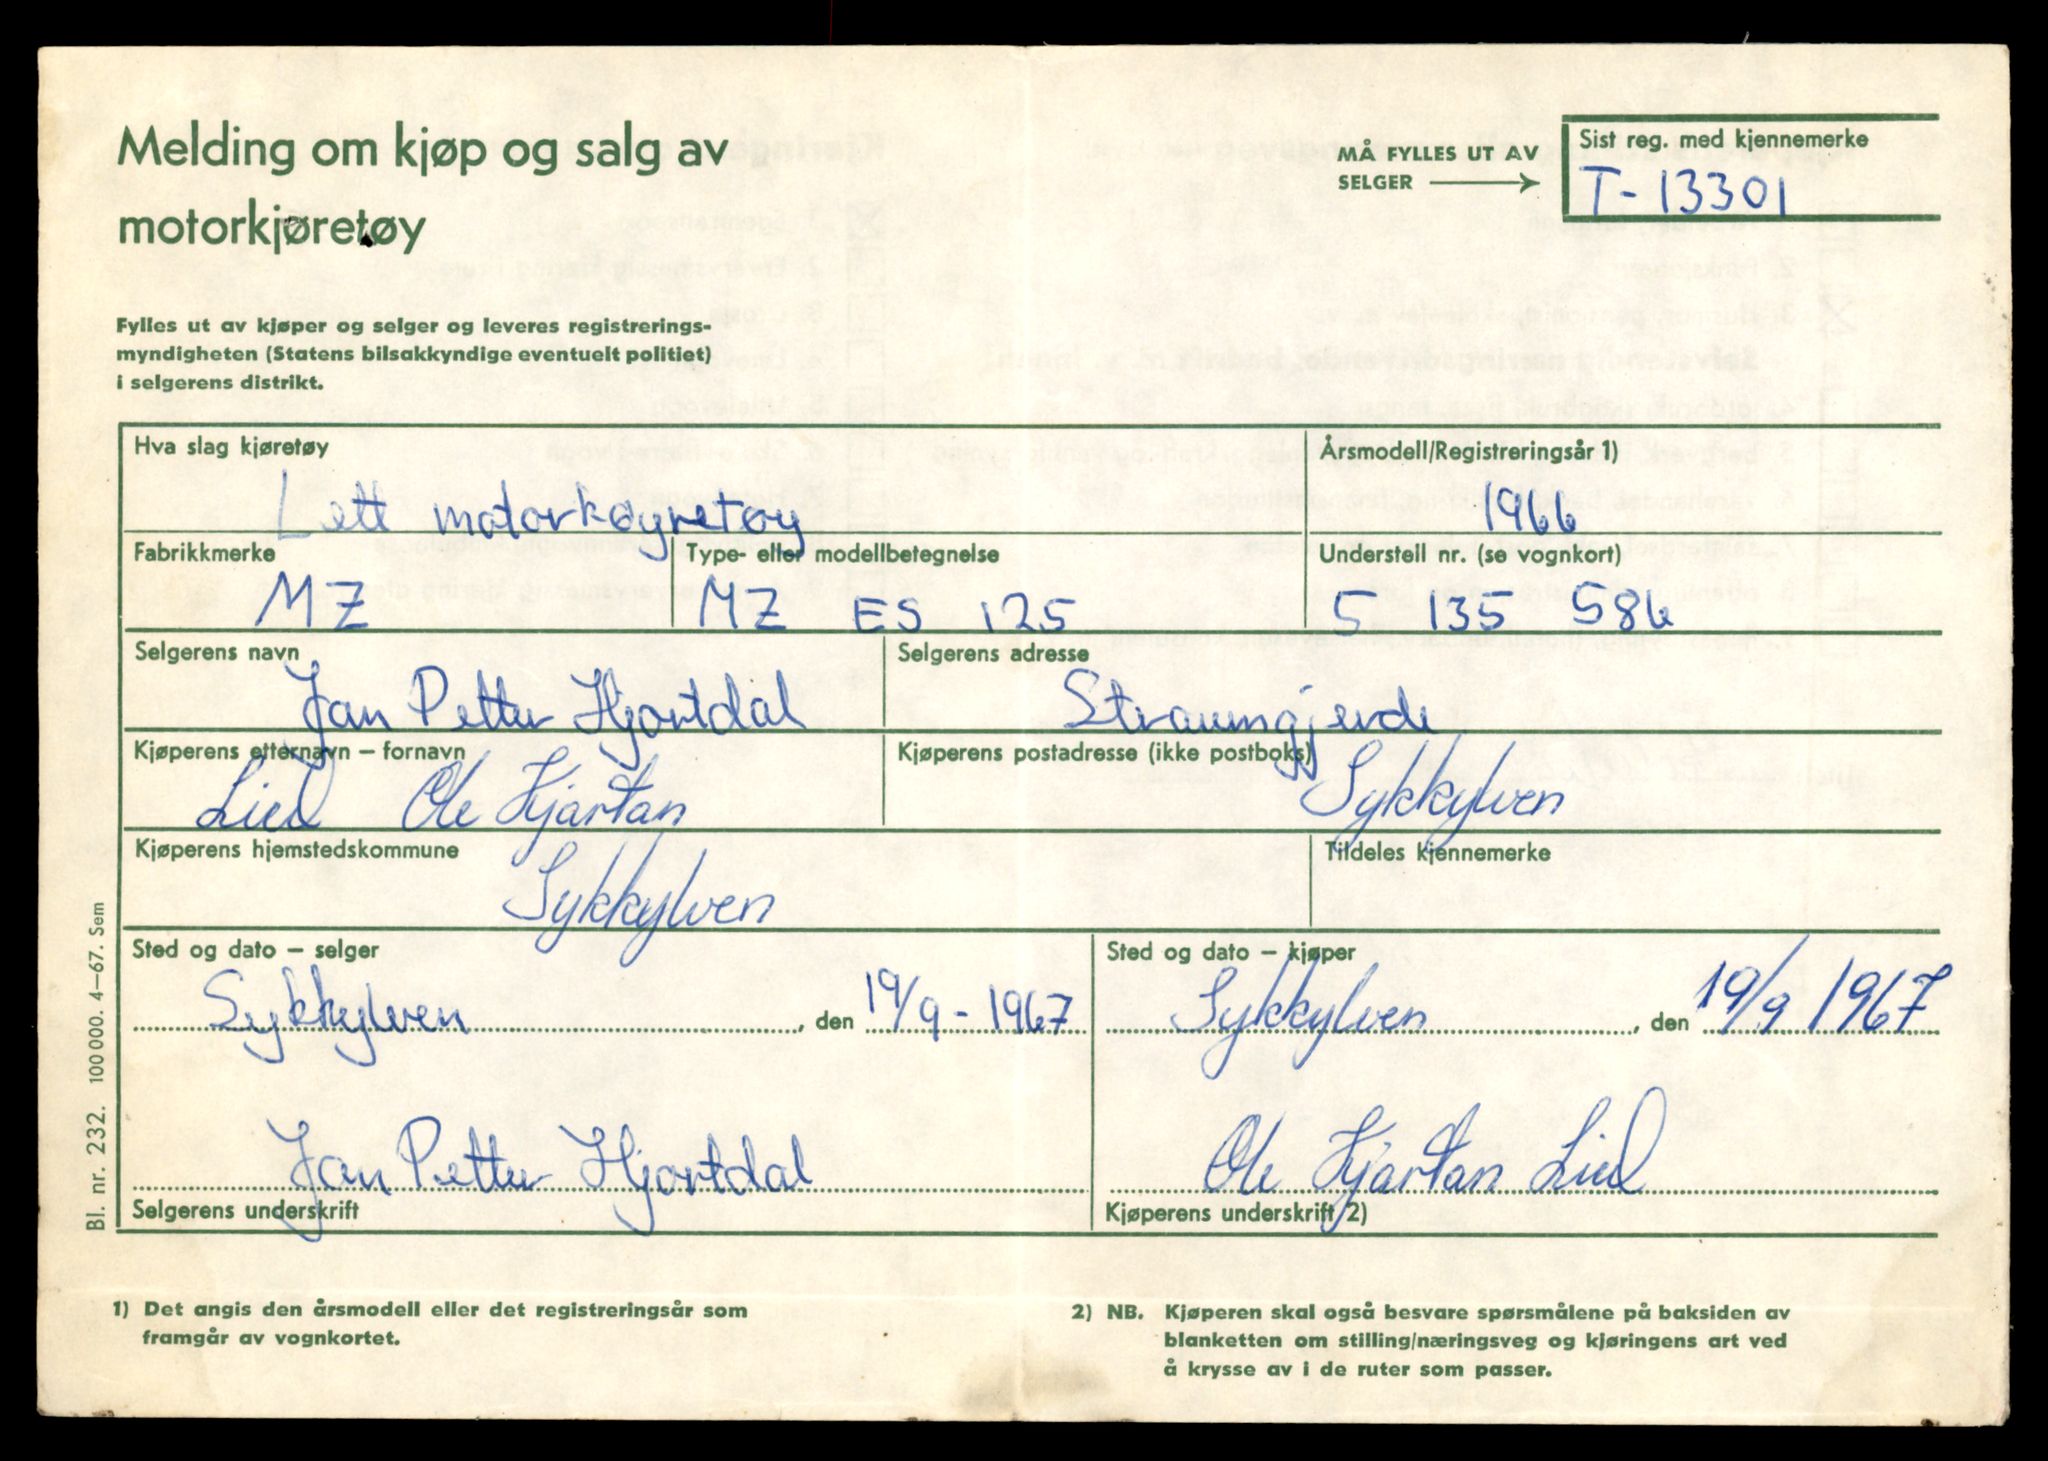 Melding om kjøp og salg av
motorkjøretøy
MÅ FYLLES UT AV
SELGER
Sist reg. med kjennemerke
T-13301
Fylles ut av kjøper og selger og leveres registrerings-
myndigheten (Statens bilsakkyndige eventuelt politiet)
i selgerens distrikt.
Hva slag kjøretøy
Lett motorkøyretøy
Årsmodell/Registreringsår 1)
1966
Fabrikkmerke
MZ
Type- eller modellbetegnelse
MZ ES 125
Understell nr. (se vognkort)
5 135 586
Selgerens navn
Jan Petter Hjortdal
Selgerens adresse
Straumgjerde
Kjøperens etternavn – fornavn
Lied Ole Kjartan
Kjøperens postadresse (ikke postboks)
Sykkylven
Kjøperens hjemstedskommune
Sykkylven
Tildeles kjennemerke
Sted og dato – selger
Sykkylven, den 19/9-1967
Sted og dato – kjøper
Sykkylven, den 19/9 1967
Jan Petter Hjortdal
Selgerens underskrift
Ole Kjartan Lied
Kjøperens underskrift 2)
Bl. nr. 232. 100 000. 4–67. Sem
1) Det angis den årsmodell eller det registreringsår som
framgår av vognkortet.
2) NB. Kjøperen skal også besvare spørsmålene på baksiden av
blanketten om stilling/næringsveg og kjøringens art ved
å krysse av i de ruter som passer.